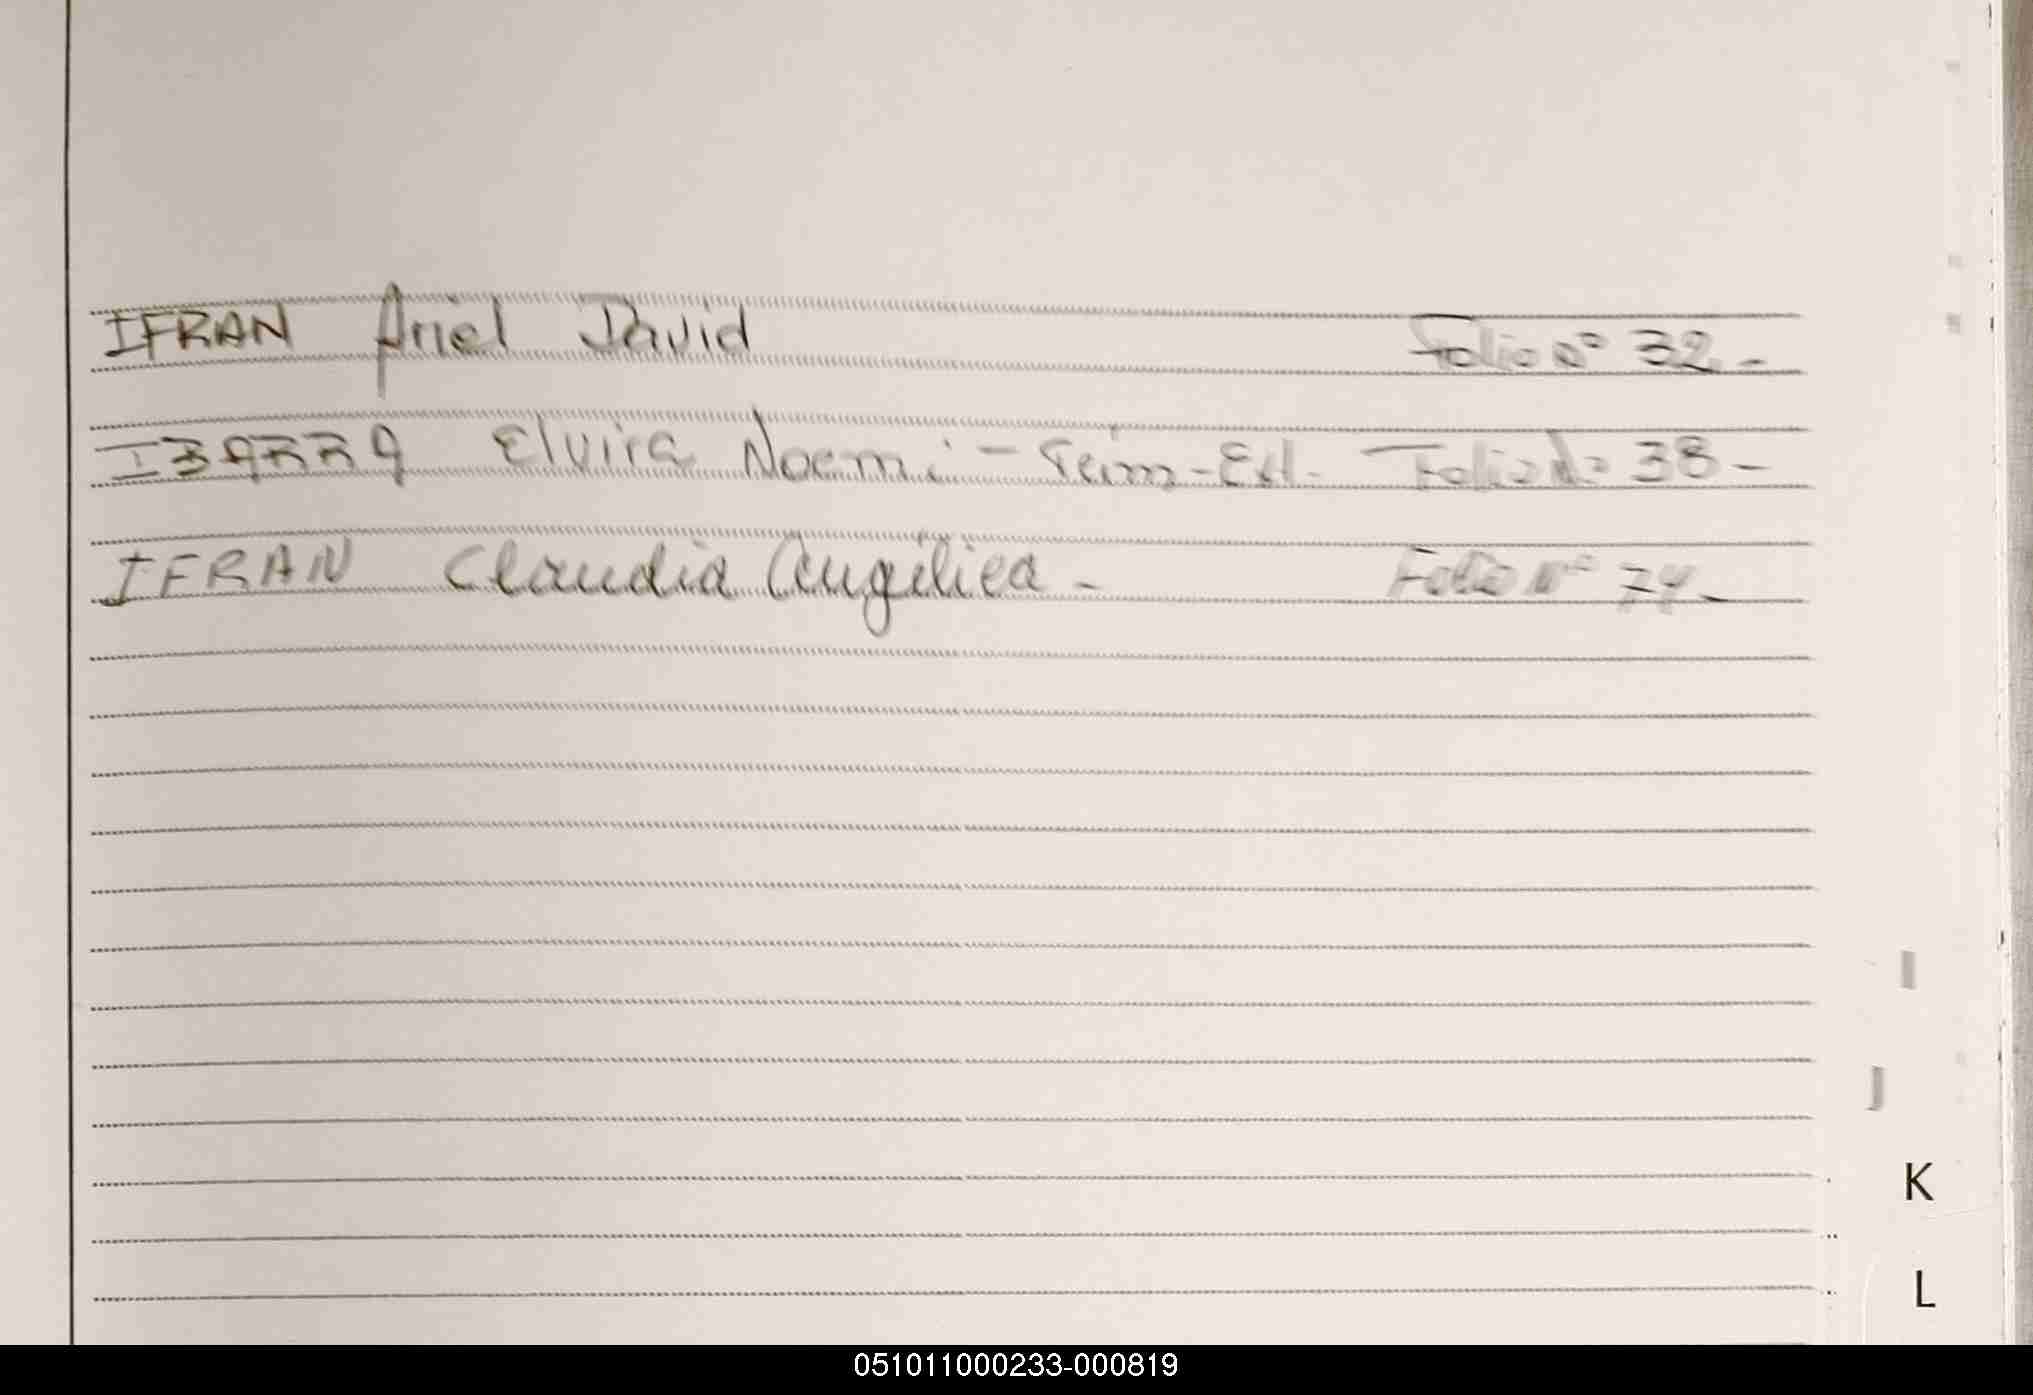 IFRAN Ariel David Folio Nº 32.-
IBARRA Elvira Noemi - Folio Nº 38 -
IFRAN Claudia Angélica - Folio Nº 74 -
I
J
K
L
051011000233-000819